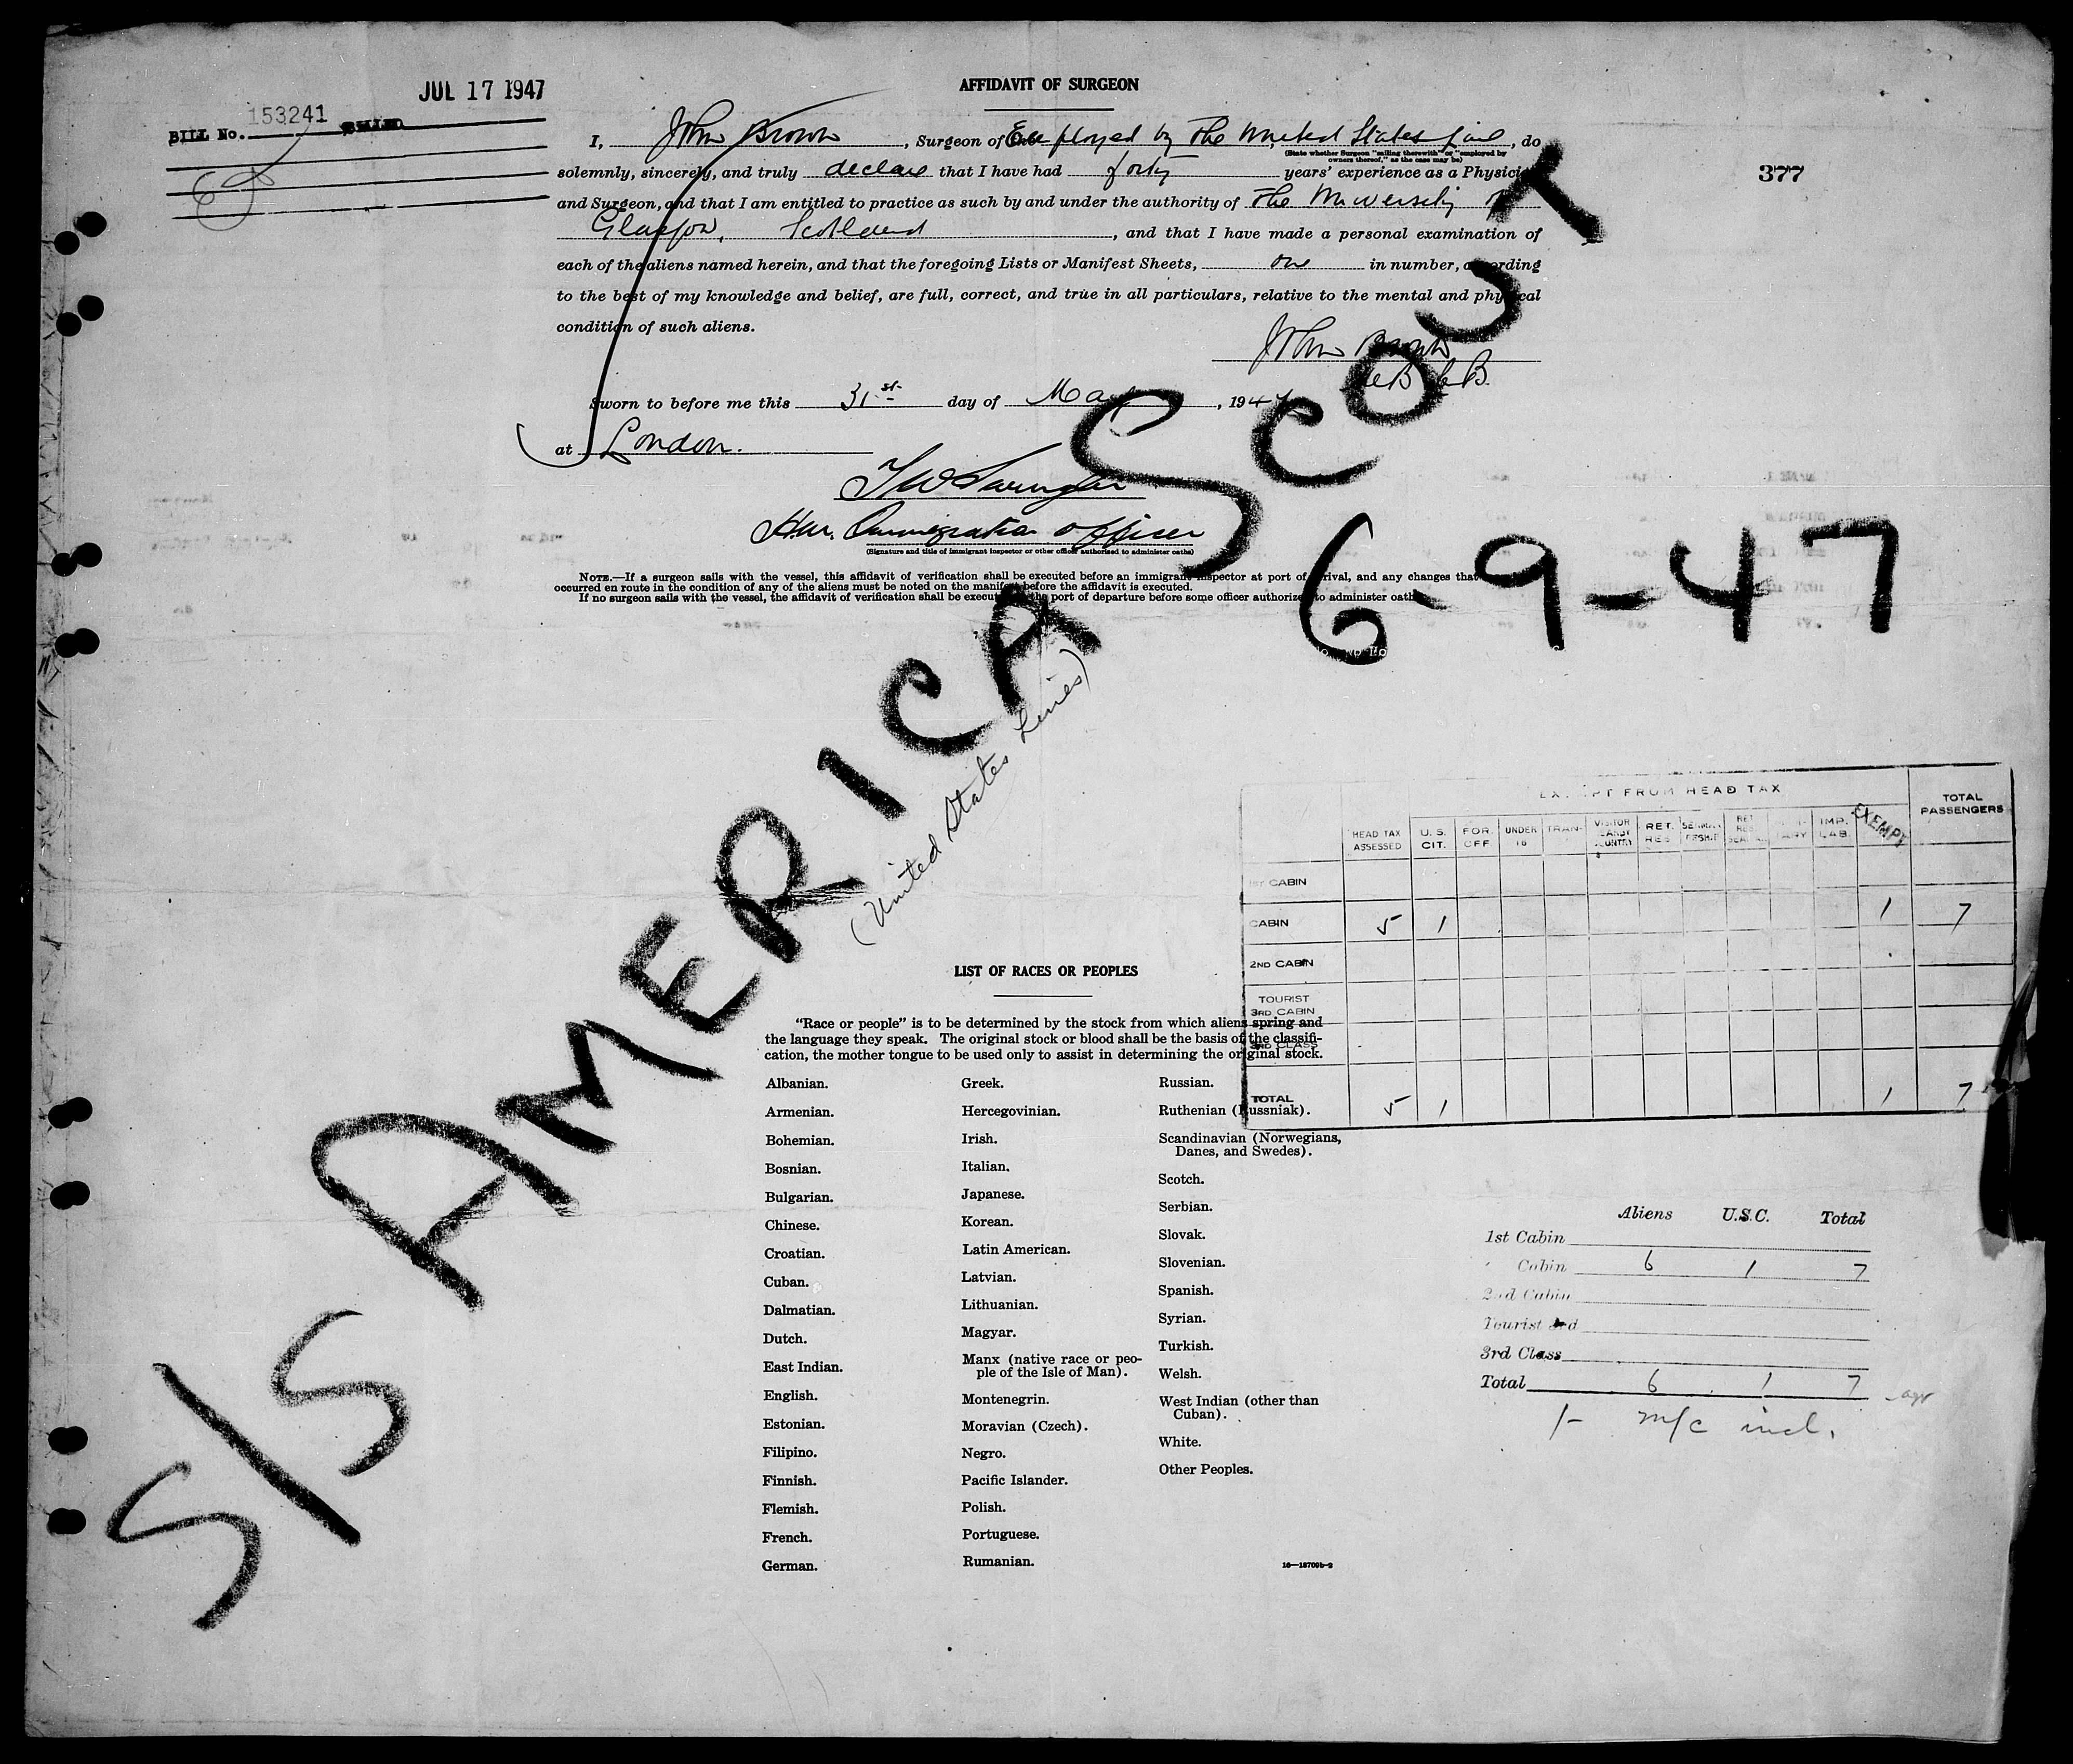 JUL 17 1947
BILL No. 153241
377
AFFIDAVIT OF SURGEON
I, John Brown, Surgeon of Employed by The United States Line, do
(State whether Surgeon "sailing therewith" or "employed by
owners thereof," as the case may be)
solemnly, sincerely, and truly declare that I have had forty years' experience as a Physician
and Surgeon, and that I am entitled to practice as such by and under the authority of The University of
Glasgow, Scotland, and that I have made a personal examination of
each of the aliens named herein, and that the foregoing Lists or Manifest Sheets, one in number, according
to the best of my knowledge and belief, are full, correct, and true in all particulars, relative to the mental and physical
condition of such aliens.
John Brown
Sworn to before me this 31st day of May, 1947
at London.
H.M. Immigration Officer
(Signature and title of immigrant inspector or other officer authorized to administer oaths)
NOTE.—If a surgeon sails with the vessel, this affidavit of verification shall be executed before an immigrant inspector at port of arrival, and any changes that
occurred en route in the condition of any of the aliens must be noted on the manifest before the affidavit is executed.
If no surgeon sails with the vessel, the affidavit of verification shall be executed at the port of departure before some officer authorized to administer oaths.
S/S AMERICA SCOUT
6-9-47
(United States Lines)
EXEMPT FROM HEAD TAX
HEAD TAX ASSESSED U.S. CIT. FOR. OFF UNDER 16 TRAN- VISITOR RET. RES IMP. LAB. EXEMPT TOTAL PASSENGERS
1ST CABIN
CABIN 5 1 1 7
2ND CABIN
TOURIST
3RD CABIN
3RD CLASS
TOTAL 5 1 1 7
LIST OF RACES OR PEOPLES
"Race or people" is to be determined by the stock from which aliens spring and
the language they speak. The original stock or blood shall be the basis of the classifi-
cation, the mother tongue to be used only to assist in determining the original stock.
Albanian.
Armenian.
Bohemian.
Bosnian.
Bulgarian.
Chinese.
Croatian.
Cuban.
Dalmatian.
Dutch.
East Indian.
English.
Estonian.
Filipino.
Finnish.
Flemish.
French.
German.
Greek.
Hercegovinian.
Irish.
Italian.
Japanese.
Korean.
Latin American.
Latvian.
Lithuanian.
Magyar.
Manx (native race or peo-
ple of the Isle of Man).
Montenegrin.
Moravian (Czech).
Negro.
Pacific Islander.
Polish.
Portuguese.
Rumanian.
Russian.
Ruthenian (Russniak).
Scandinavian (Norwegians,
Danes, and Swedes).
Scotch.
Serbian.
Slovak.
Slovenian.
Spanish.
Syrian.
Turkish.
Welsh.
West Indian (other than
Cuban).
White.
Other Peoples.
16—18709b-2
Aliens U.S.C. Total
1st Cabin
Cabin 6 1 7
2nd Cabin
Tourist 3rd
3rd Class
Total 6 1 7
1- m/c incl.